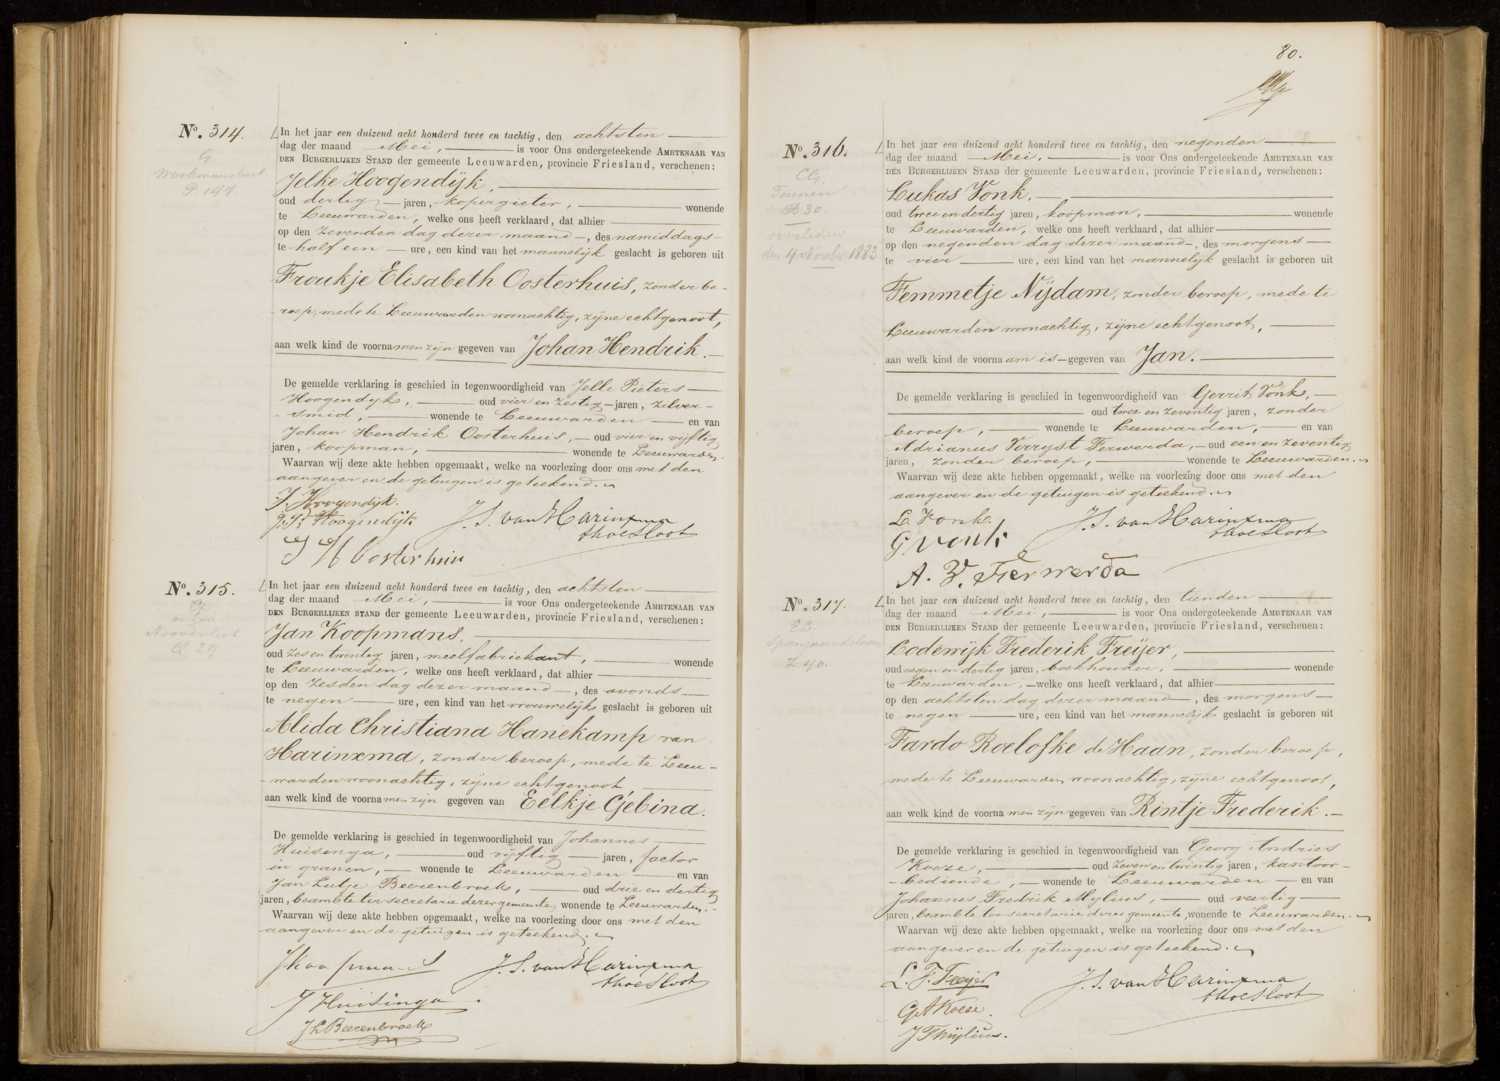 No. 314.
G
P 144
In het jaar een duizend acht honderd twee en tachtig, den achtsten
dag der maand Mei, is voor Ons ondergeteekende AMBTENAAR VAN
DEN BURGERLIJKEN STAND der gemeente Leeuwarden, provincie Friesland, verschenen:
Jelke Hoogendijk,
oud dertig jaren, kopergieter, wonende
te Leeuwarden, welke ons heeft verklaard, dat alhier
op den zevenden dag dezer maand, des namiddags
te half een ure, een kind van het mannelijk geslacht is geboren uit
Froukje Elisabeth Oosterhuis, zonder be-
roep, mede te Leeuwarden woonachtig, zijne echtgenoot,
aan welk kind de voornamen zijn gegeven van Johan Hendrik.
De gemelde verklaring is geschied in tegenwoordigheid van Jelle Pieters
Hoogendijk, oud vier en zestig jaren, zilver-
smid, wonende te Leeuwarden en van
Johan Hendrik Oosterhuis, oud vier en vijftig
jaren, koopman, wonende te Leeuwarden.
Waarvan wij deze akte hebben opgemaakt, welke na voorlezing door ons met den
aangever en de getuigen is geteekend.
J. Hoogendijk.
J. P. Hoogendijk
J. S. van Harinxma
thoe Slooten
J H Oosterhuis
No. 315.
C 29
In het jaar een duizend acht honderd twee en tachtig, den achtsten
dag der maand Mei, is voor Ons ondergeteekende AMBTENAAR VAN
DEN BURGERLIJKEN STAND der gemeente Leeuwarden, provincie Friesland, verschenen:
Jan Koopmans,
oud zes en twintig jaren, meelfabriekant, wonende
te Leeuwarden, welke ons heeft verklaard, dat alhier
op den zesden dag dezer maand, des avonds
te negen ure, een kind van het vrouwelijk geslacht is geboren uit
Alida Christiana Hanekamp van
Harinxma, zonder beroep, mede te Leeu-
warden woonachtig, zijne echtgenoot
aan welk kind de voornamen zijn gegeven van Eelkje Gebina.
De gemelde verklaring is geschied in tegenwoordigheid van Johannes
Huisinga, oud vijftig jaren, factor
in granen, wonende te Leeuwarden en van
Jan Lutje Beerenbroek, oud drie en dertig
jaren, beambte ter secretarie dezer gemeente, wonende te Leeuwarden.
Waarvan wij deze akte hebben opgemaakt, welke na voorlezing door ons met den
aangever en de getuigen is geteekend.
J Koopmans
J. S. van Harinxma
thoe Slooten
J Huisinga.
J L Beerenbroek
80.
No. 316.
30.
overleden
den 4 Novb. 1883
In het jaar een duizend acht honderd twee en tachtig, den negenden
dag der maand Mei, is voor Ons ondergeteekende AMBTENAAR VAN
DEN BURGERLIJKEN STAND der gemeente Leeuwarden, provincie Friesland, verschenen:
Lukas Vonk,
oud twee en dertig jaren, koopman, wonende
te Leeuwarden, welke ons heeft verklaard, dat alhier
op den negenden dag dezer maand, des morgens
te vier ure, een kind van het mannelijk geslacht is geboren uit
Femmetje Nijdam, zonder beroep, mede te
Leeuwarden woonachtig, zijne echtgenoot,
aan welk kind de voornaam is gegeven van Jan.
De gemelde verklaring is geschied in tegenwoordigheid van Gerrit Vonk,
oud twee en zeventig jaren, zonder
beroep, wonende te Leeuwarden, en van
Adrianus Verryst Ferwerda, oud een en zeventig
jaren, zonder beroep, wonende te Leeuwarden.
Waarvan wij deze akte hebben opgemaakt, welke na voorlezing door ons met den
aangever en de getuigen is geteekend.
L. Vonk.
J. S. van Harinxma
thoe Slooten
G Vonk
A. V. Ferwerda
No. 317.
Z 40.
In het jaar een duizend acht honderd twee en tachtig, den tienden
dag der maand Mei, is voor Ons ondergeteekende AMBTENAAR VAN
DEN BURGERLIJKEN STAND der gemeente Leeuwarden, provincie Friesland, verschenen:
Lodewijk Frederik Freijer,
oud negen en dertig jaren, boekhouder, wonende
te Leeuwarden, welke ons heeft verklaard, dat alhier
op den achtsten dag dezer maand, des morgens
te negen ure, een kind van het mannelijk geslacht is geboren uit
Fardo Roelofke de Haan, zonder beroep,
mede te Leeuwarden woonachtig, zijne echtgenoot,
aan welk kind de voornamen zijn gegeven van Rintje Frederik.
De gemelde verklaring is geschied in tegenwoordigheid van Georg Andries
Koeze, oud zeven en twintig jaren, kantoor-
bediende, wonende te Leeuwarden en van
Johannes Fredrik Mylius, oud veertig
jaren, beambte ter secretarie dezer gemeente, wonende te Leeuwarden.
Waarvan wij deze akte hebben opgemaakt, welke na voorlezing door ons met den
aangever en de getuigen is geteekend.
L. F. Freijer
J. S. van Harinxma
thoe Slooten
G A Koeze.
J F Mylius.